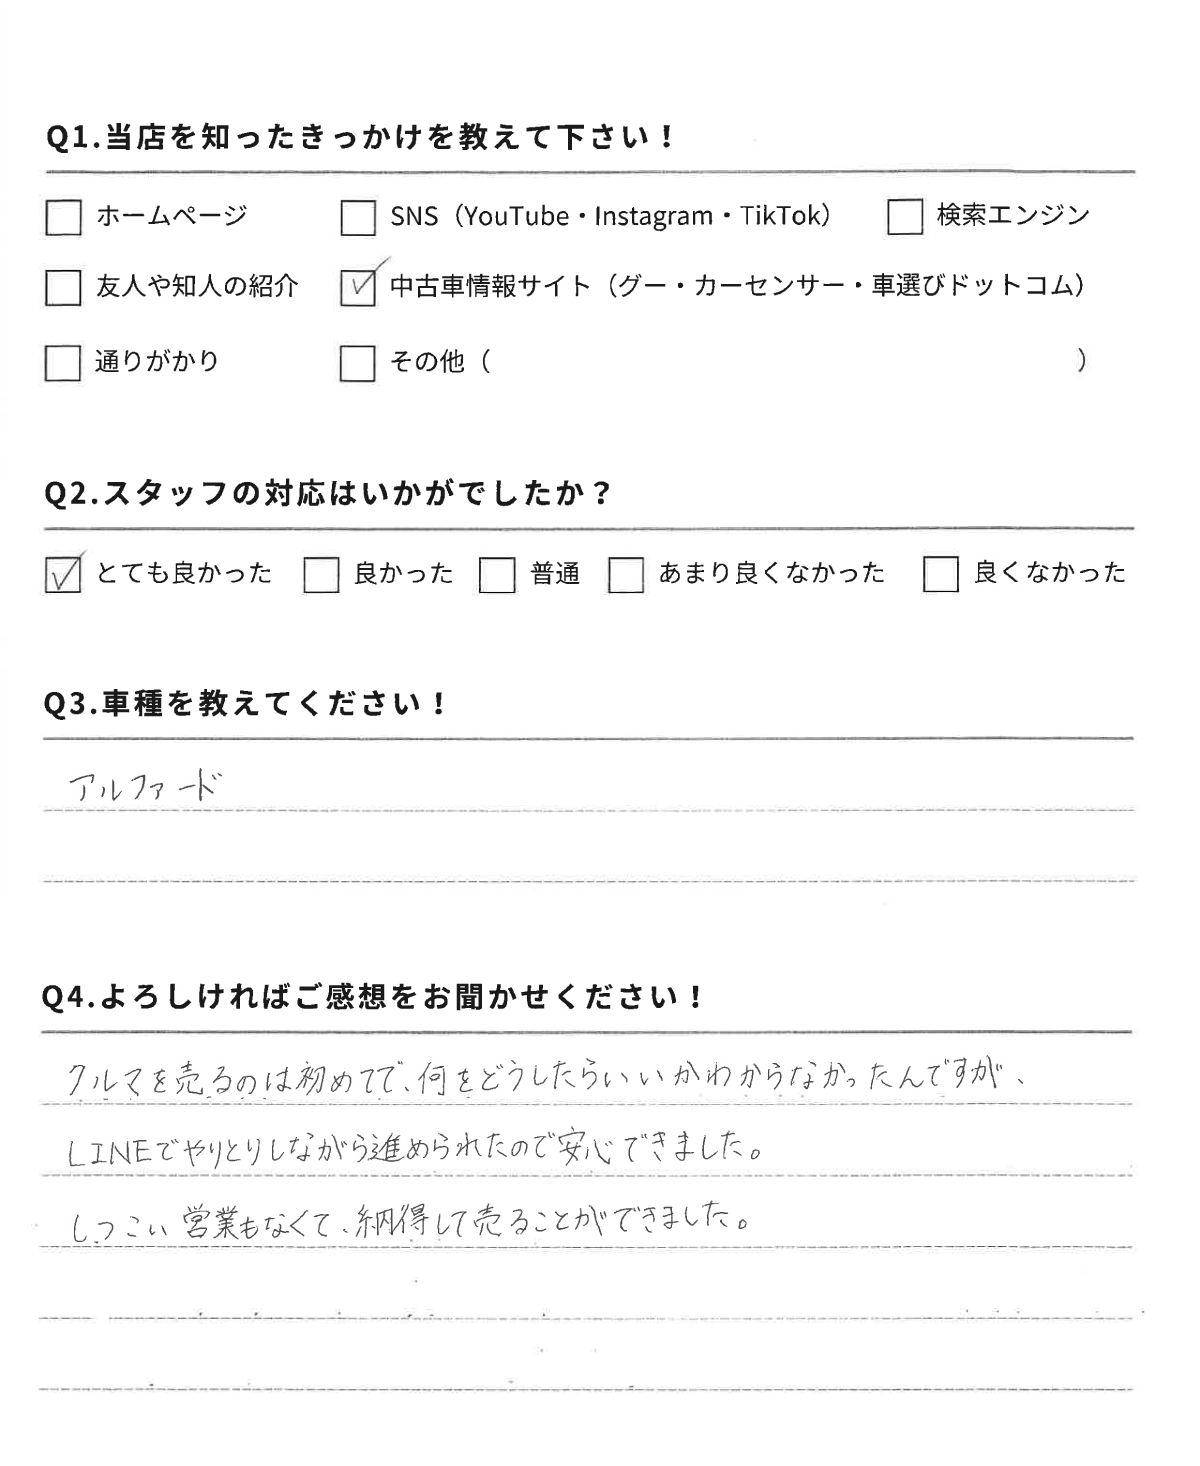 Q1.当店を知ったきっかけを教えて下さい！
□ ホームページ □ SNS（YouTube・Instagram・TikTok） □ 検索エンジン
□ 友人や知人の紹介 ☑ 中古車情報サイト（グー・カーセンサー・車選びドットコム）
□ 通りがかり □ その他（ ）
Q2.スタッフの対応はいかがでしたか？
☑ とても良かった □ 良かった □ 普通 □ あまり良くなかった □ 良くなかった
Q3.車種を教えてください！
アルファード
Q4.よろしければご感想をお聞かせください！
クルマを売るのは初めてで、何をどうしたらいいかわからなかったんですが、
LINEでやりとりしながら進められたので安心できました。
しつこい営業もなくて、納得して売ることができました。